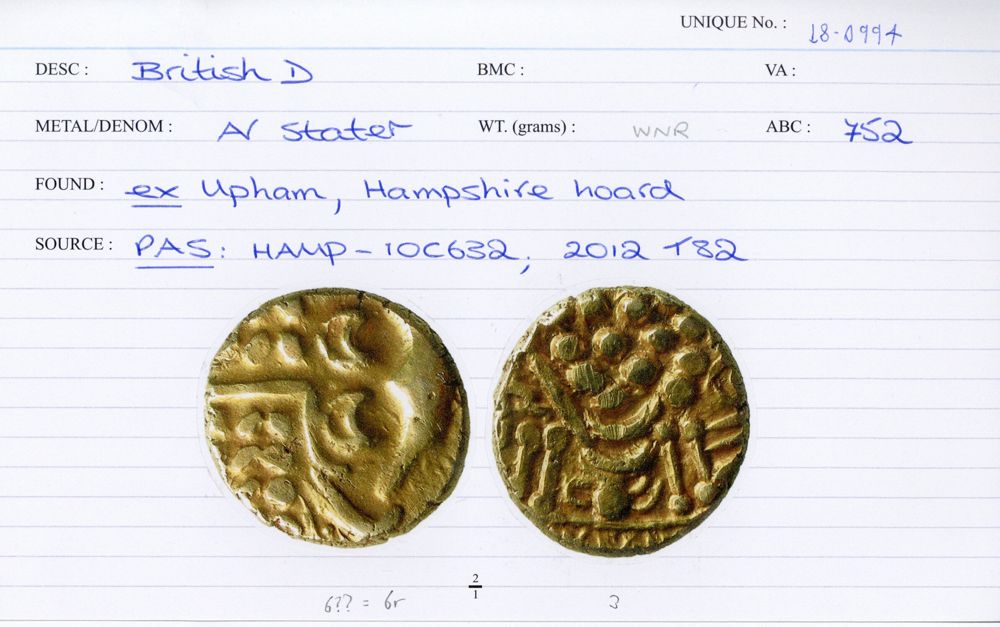 UNIQUE No. : 18-0994
DESC : British D BMC : VA :
METAL/DENOM : AV Stater WT. (grams) : WNR ABC : 752
FOUND : ex Upham, Hampshire hoard
SOURCE : PAS: HAMP-10C632, 2012 T82
2
1
6?? = 6r 3